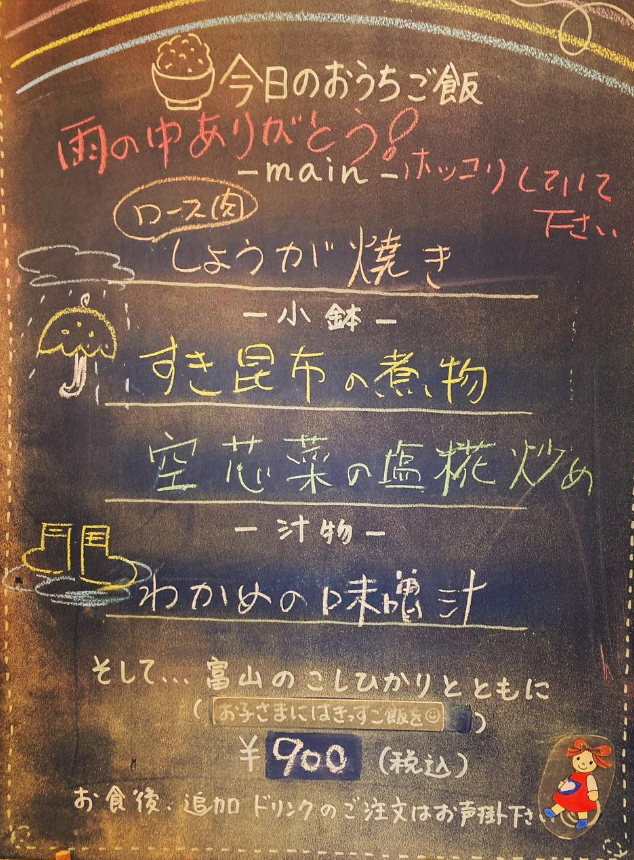 今日のおうちご飯
雨の中ありがとう!
-main-
ホッコリしていて
下さい
ロース肉
しょうが焼き
-小鉢-
すき昆布の煮物
空芯菜の塩糀炒め
-汁物-
わかめの味噌汁
そして... 富山のこしひかりとともに
(お子さまにはきっずご飯を☺)
¥900(税込)
お食後、追加ドリンクのご注文はお声掛下さい